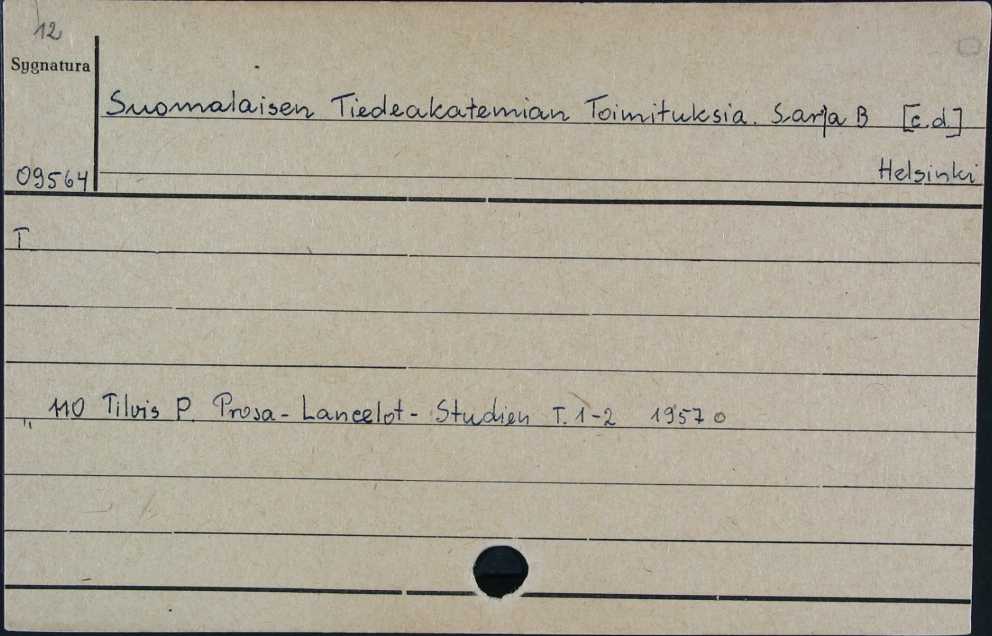 12
Sygnatura
Suomalaisen Tiedeakatemian Toimituksia. Sarja B [c.d.]
09564
Helsinki
T.
„ 110 Tilvis P. Prosa-Lancelot-Studien T. 1-2 1957 o